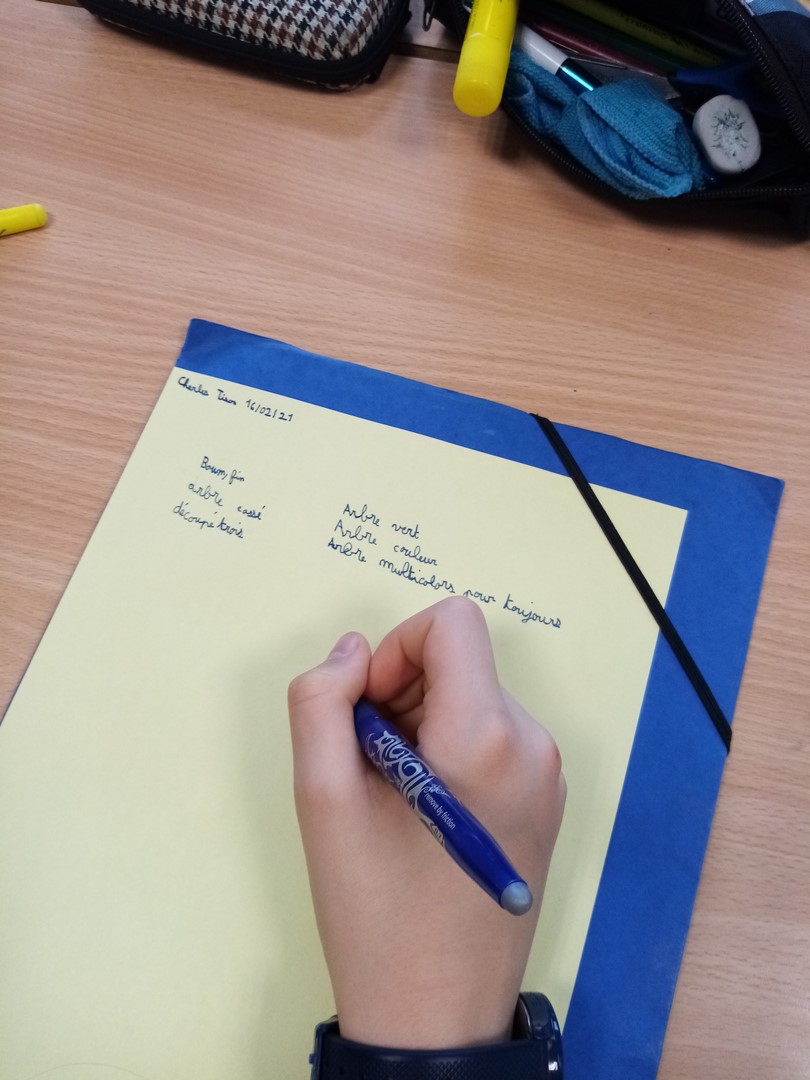 Charles Tison 16/02/21
Boum, fin
arbre cassé
découpé trois
Arbre vert
Arbre couleur
Arbre multicolors pour toujours
remove by friction